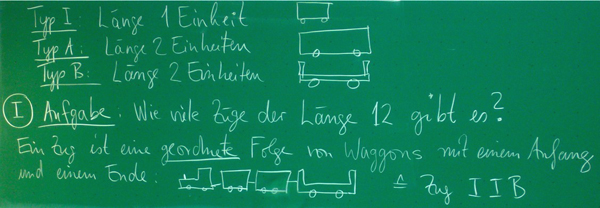 Typ I: Länge 1 Einheit
Typ A: Länge 2 Einheiten
Typ B: Länge 2 Einheiten
I Aufgabe: Wie viele Züge der Länge 12 gibt es?
Ein Zug ist eine geordnete Folge von Waggons mit einem Anfang
und einem Ende: ≙ Zug I I B